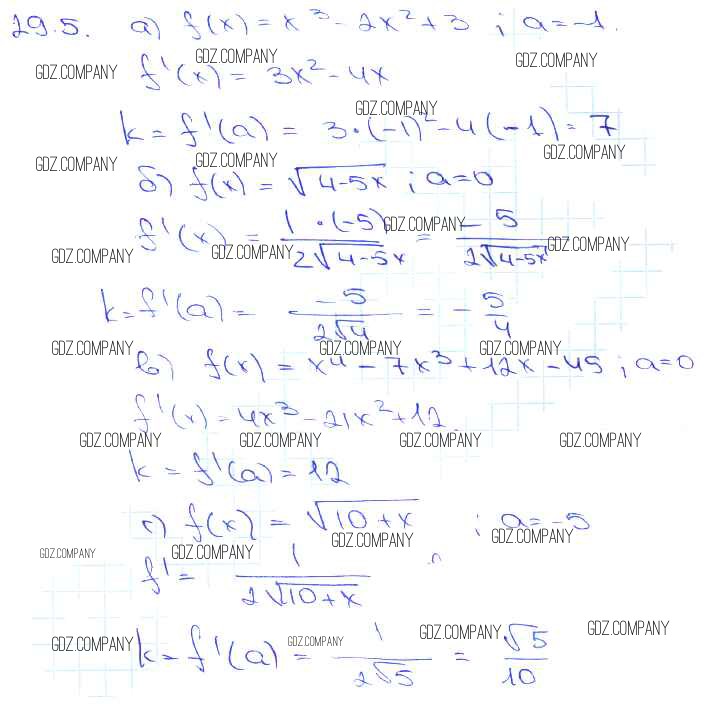 29.5. а) f(x) = x³ - 2x² + 3 ; a = -1.
GDZ.COMPANY GDZ.COMPANY GDZ.COMPANY
f'(x) = 3x² - 4x
GDZ.COMPANY
k = f'(a) = 3·(-1)² - 4(-1) = 7
GDZ.COMPANY GDZ.COMPANY GDZ.COMPANY
б) f(x) = √(4-5x) ; a = 0
f'(x) = 1·(-5)/(2√(4-5x)) = -5/(2√(4-5x))
GDZ.COMPANY
GDZ.COMPANY GDZ.COMPANY GDZ.COMPANY
k = f'(a) = -5/(2√4) = -5/4
GDZ.COMPANY GDZ.COMPANY GDZ.COMPANY
в) f(x) = x⁴ - 7x³ + 12x - 45 ; a = 0
f'(x) = 4x³ - 21x² + 12.
GDZ.COMPANY GDZ.COMPANY GDZ.COMPANY GDZ.COMPANY
k = f'(a) = 12
г) f(x) = √(10+x) ; a = -5
GDZ.COMPANY GDZ.COMPANY GDZ.COMPANY GDZ.COMPANY
f' = 1/(2√(10+x))
k = f'(a) = 1/(2√5) = √5/10
GDZ.COMPANY GDZ.COMPANY GDZ.COMPANY GDZ.COMPANY